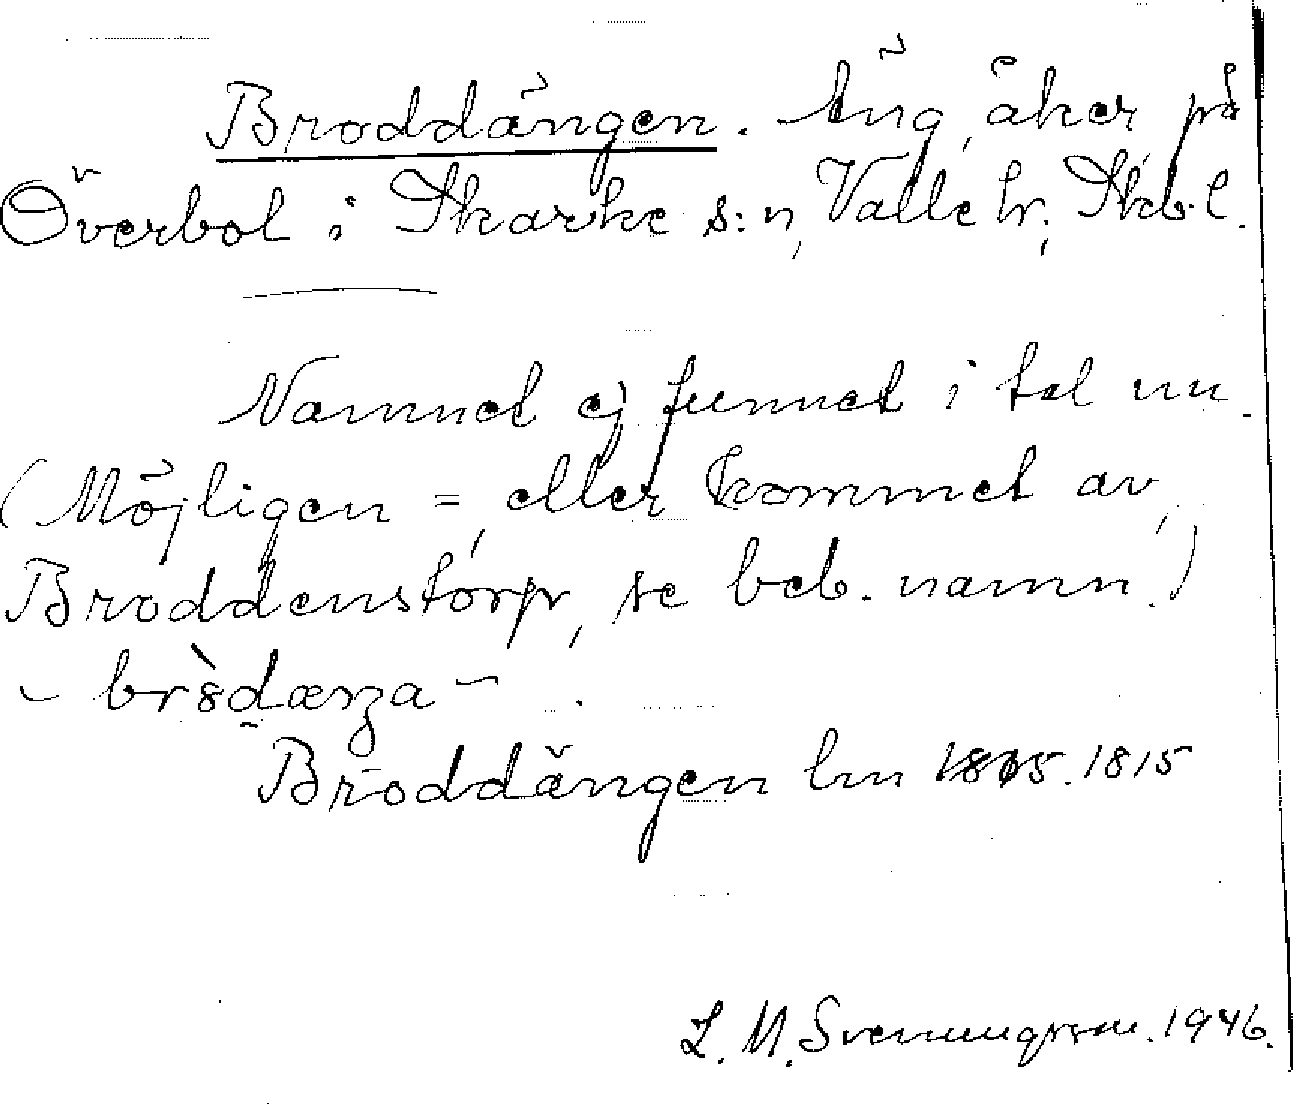 Broddängen. Äng, åker på
Överbol i Skarke s:n, Valle hr, Skb. l.
Namnet ej funnet i tal nu.
(Möjligen =, eller kommet av,
Broddenstorp, se beb. namn.)
Broddängen lm 1815. 1815
L. M. Svenungsson. 1946.